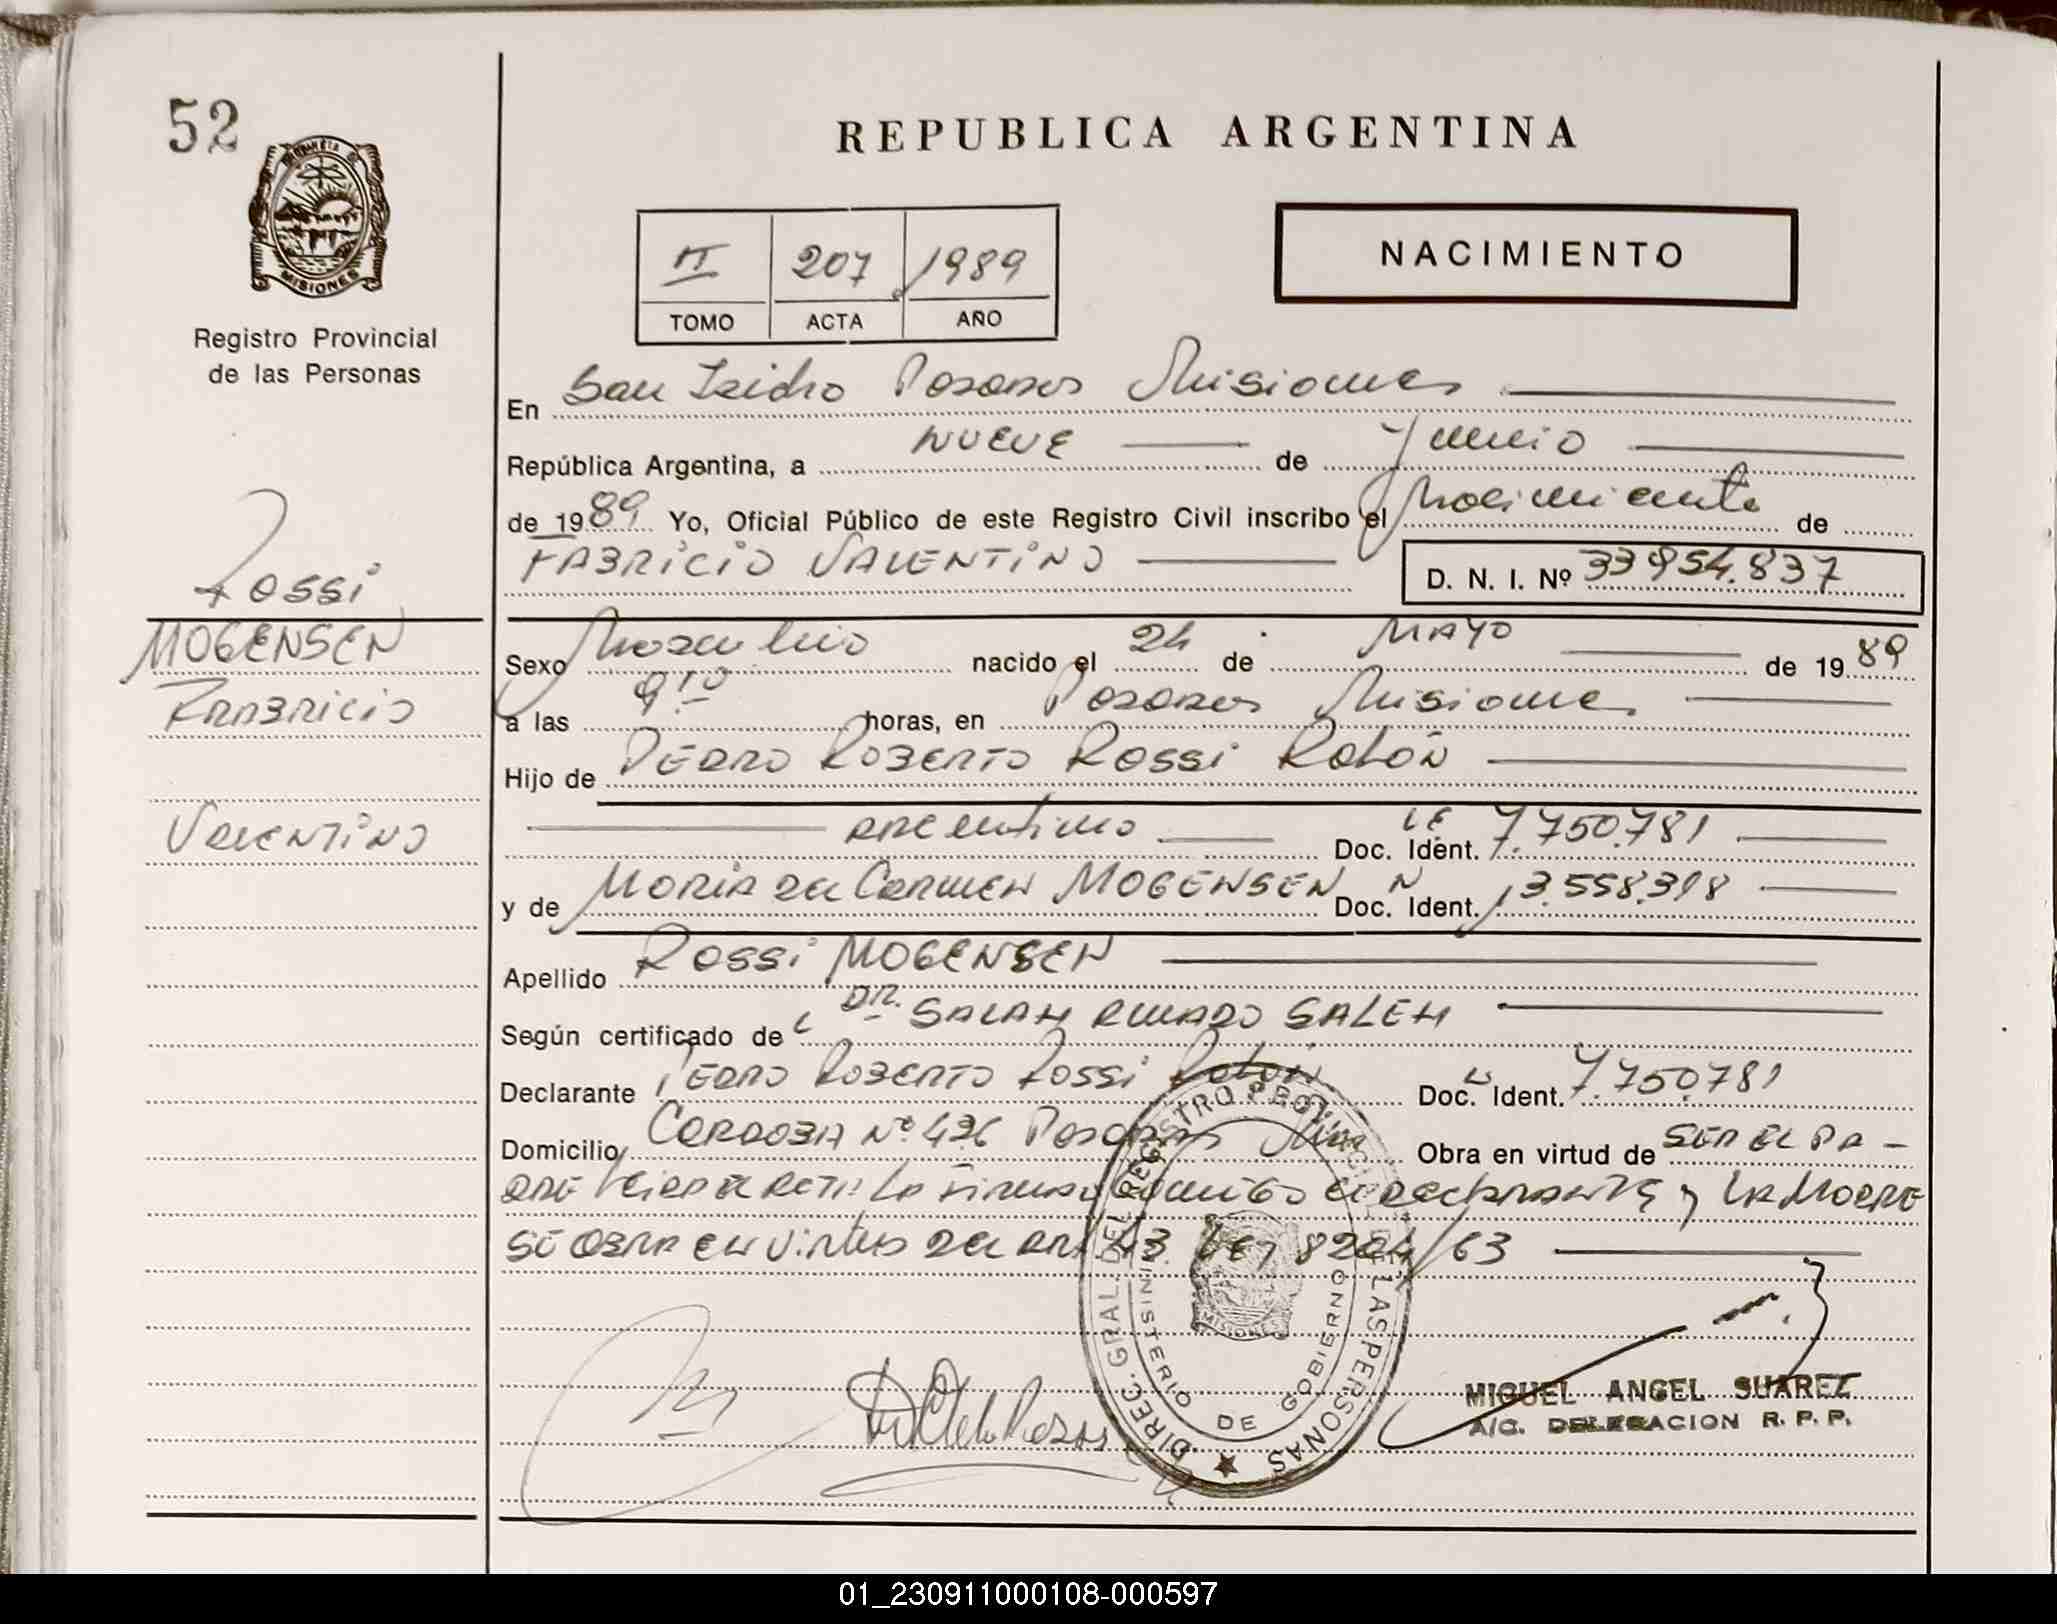 52
REPUBLICA ARGENTINA
PROVINCIA DE
MISIONES
Registro Provincial
de las Personas
II 207 1989
TOMO ACTA AÑO
NACIMIENTO
En San Isidro Posadas Misiones
República Argentina, a NUEVE de Junio
de 1989 Yo, Oficial Público de este Registro Civil inscribo el Nacimiento de
FABRICIO VALENTINO D. N. I. Nº 33.954.837
Rossi
MOGENSEN
FABRICIO
VALENTINO
Sexo Masculino nacido el 24 de MAYO de 1989
a las 9 10 horas, en Posadas Misiones
Hijo de PEDRO ROBERTO ROSSI ROLÓN
argentino Doc. Ident. LE 7.750.781
y de MARIA del CARMEN MOGENSEN Doc. Ident. N 13.558.318
Apellido ROSSI MOGENSEN
Según certificado de DR. SALAM SALEM
Declarante PEDRO ROBERTO ROSSI ROLÓN Doc. Ident. 7.750.781
Domicilio CORDOBA Nº 436 Posadas Mnes Obra en virtud de SER EL PA-
DRE LEIDA EL ACTA LA FIRMA CONMIGO EL DECLARANTE y LA MADRE
SE OBRA EN VIRTUD del ART 43 LEY 8204/63
DIREC. GRAL. DEL REGISTRO PROVINCIAL DE LAS PERSONAS
MINISTERIO DE GOBIERNO
MISIONES
MIGUEL ANGEL SUAREZ
A/C. DELEGACION R. P. P.
01_230911000108-000597